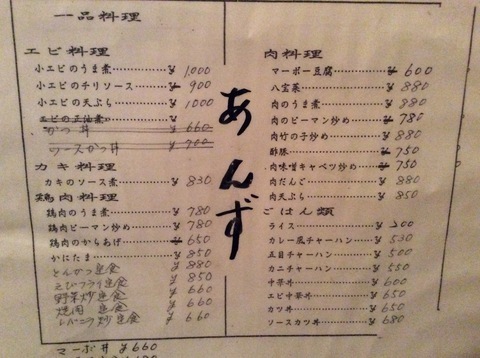 一品料理
エビ料理
小エビのうま煮 ¥ 1,000
小エビのチリソース ¥ 900
小エビの天ぷら ¥ 1,000
エビの正油煮
かつ丼 ¥ 660
ソースかつ丼 ¥ 700
カキ料理
カキのソース煮 ¥ 830
鶏肉料理
鶏肉のうま煮 ¥ 780
鶏肉ピーマン炒め ¥ 780
鶏肉のからあげ ¥ 650
かにたま ¥ 850
とんかつ定食 ¥ 880
えびフライ定食 ¥ 850
野菜炒定食 ¥ 660
焼肉定食 ¥ 660
レバニラ炒定食 ¥ 660
マーボ丼 ¥ 660
あんず
肉料理
マーボー豆腐 ¥ 600
八宝菜 ¥ 880
肉のうま煮 ¥ 880
肉のピーマン炒め ¥ 780
肉竹の子炒め ¥ 880
酢豚 ¥ 750
肉味噌キャベツ炒め ¥ 750
肉だんご ¥ 880
肉天ぷら ¥ 850
ごはん類
ライス ¥ 200
カレー風チャーハン ¥ 530
五目チャーハン ¥ 500
カニチャーハン ¥ 550
中華丼 ¥ 600
エビ中華丼 ¥ 650
カツ丼 ¥ 650
ソースカツ丼 ¥ 680